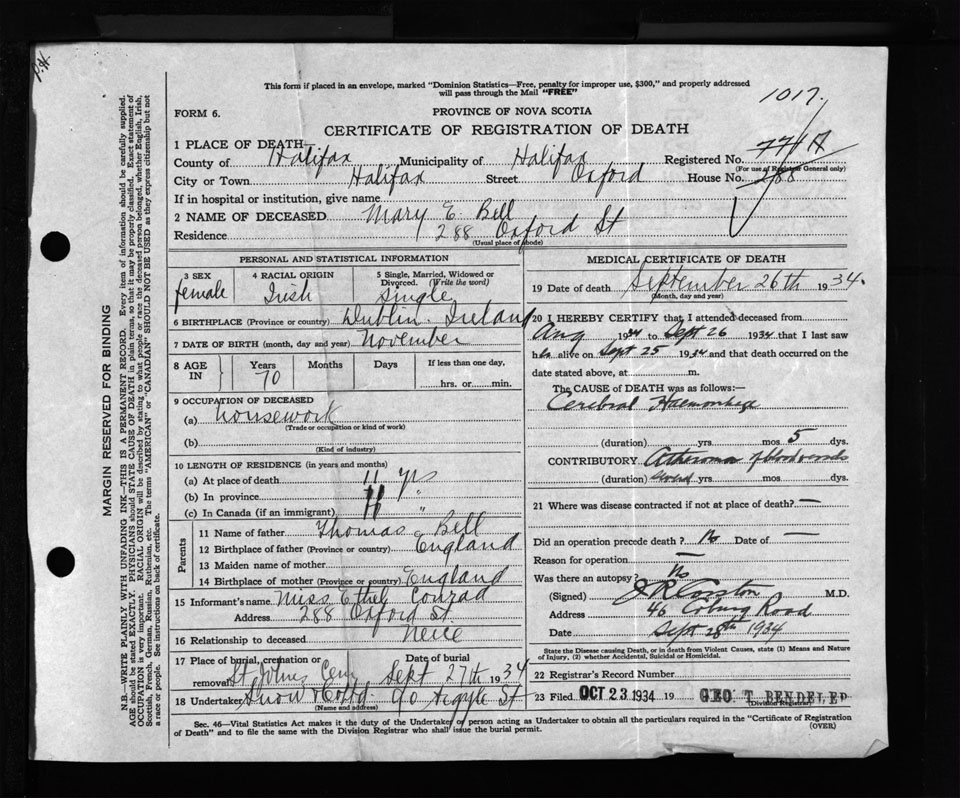 This form if placed in an envelope, marked "Dominion Statistics—Free, penalty for improper use, $300," and properly addressed
will pass through the Mail "FREE"
1017.
FORM 6.
PROVINCE OF NOVA SCOTIA
CERTIFICATE OF REGISTRATION OF DEATH
1 PLACE OF DEATH—
County of Halifax Municipality of Halifax Registered No.
(For use of Registrar General only)
City or Town Halifax Street Oxford House No. 288
If in hospital or institution, give name
2 NAME OF DECEASED Mary E. Bell
Residence 288 Oxford St
(Usual place of abode)
PERSONAL AND STATISTICAL INFORMATION
3 SEX female
4 RACIAL ORIGIN Irish
5 Single, Married, Widowed or Divorced. (Write the word) Single
6 BIRTHPLACE (Province or country) Dublin. Ireland
7 DATE OF BIRTH (month, day and year) November
8 AGE IN Years 70 Months Days If less than one day, hrs. or min.
9 OCCUPATION OF DECEASED
(a) Housework
(Trade or occupation or kind of work)
(b)
(Kind of industry)
10 LENGTH OF RESIDENCE (in years and months)
(a) At place of death 11 yrs
(b) In province 11 "
(c) In Canada (if an immigrant) 11 "
Parents
11 Name of father Thomas Bell
12 Birthplace of father (Province or country) England
13 Maiden name of mother
14 Birthplace of mother (Province or country) England
15 Informant's name Miss Ethel Conrad
Address 288 Oxford St.
16 Relationship to deceased Neice
17 Place of burial, cremation or removal St Johns Cem
Date of burial Sept 27th 1934
18 Undertaker Snow & Co Ltd. 90 Argyle St
(Name and address)
MEDICAL CERTIFICATE OF DEATH
19 Date of death September 26th 1934.
(Month, day and year)
20 I HEREBY CERTIFY that I attended deceased from
Aug 1934 to Sept 26 1934 that I last saw
her alive on Sept 25 1934 and that death occurred on the
date stated above, at m.
The CAUSE OF DEATH was as follows:—
Cerebral Haemorrhage
(duration) yrs mos 5 dys.
CONTRIBUTORY Atheroma of blood vessels
(duration) yrs mos dys.
21 Where was disease contracted if not at place of death? —
Did an operation precede death? No Date of —
Reason for operation —
Was there an autopsy? No
(Signed) J R Corston M.D.
Address 46 Coburg Road
Date Sept 28th 1934
State the Disease causing Death, or in death from Violent Causes, state (1) Means and Nature
of Injury, (2) whether Accidental, Suicidal or Homicidal.
22 Registrar's Record Number
23 Filed OCT 23 1934 19 GEO. T. BENDELED
(Division Registrar)
Sec. 46—Vital Statistics Act makes it the duty of the Undertaker or person acting as Undertaker to obtain all the particulars required in the "Certificate of Registration
of Death" and to file the same with the Division Registrar who shall issue the burial permit.
(OVER)
MARGIN RESERVED FOR BINDING
N.B.—WRITE PLAINLY WITH UNFADING INK—THIS IS A PERMANENT RECORD. Every item of information should be carefully supplied.
AGE should be stated EXACTLY. PHYSICIANS should STATE CAUSE OF DEATH in plain terms, so that it may be properly classified. Exact statement of
OCCUPATION is very important. RACIAL ORIGIN will be described by stating to what people or race the deceased person belonged, whether English, Irish,
Scottish, French, German, Russian, Ruthenian, etc. The terms "AMERICAN" or "CANADIAN" SHOULD NOT BE USED as they express citizenship but not
a race or people. See instructions on back of certificate.